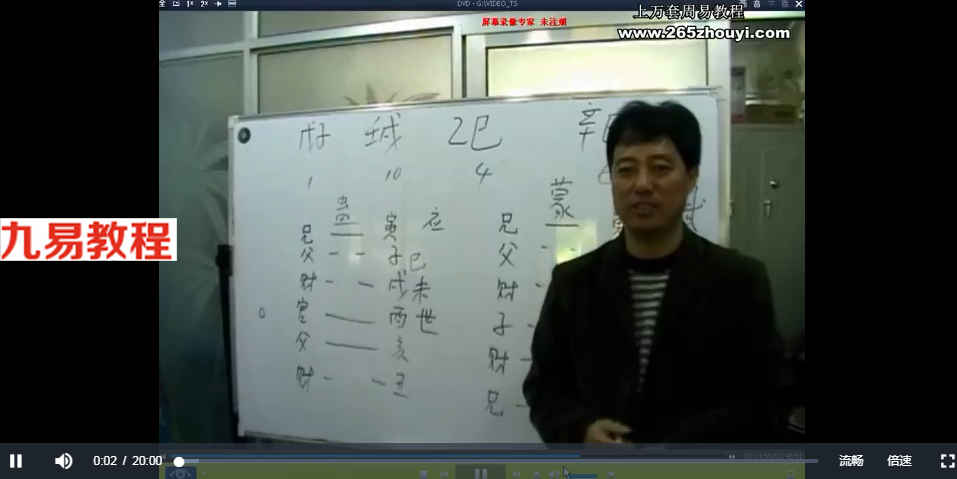 DVD - G:\VIDEO_TS
屏幕录像专家 未注册
上万套周易教程
www.265zhouyi.com
九易教程
戊子 乙巳 辛
1 10 4
蛊 蒙
兄 寅 应 兄
父 子 巳 父
财 戌 未 财
官 酉 世 子
父 亥 财
财 丑 兄
0:02 / 20:00 流畅 倍速